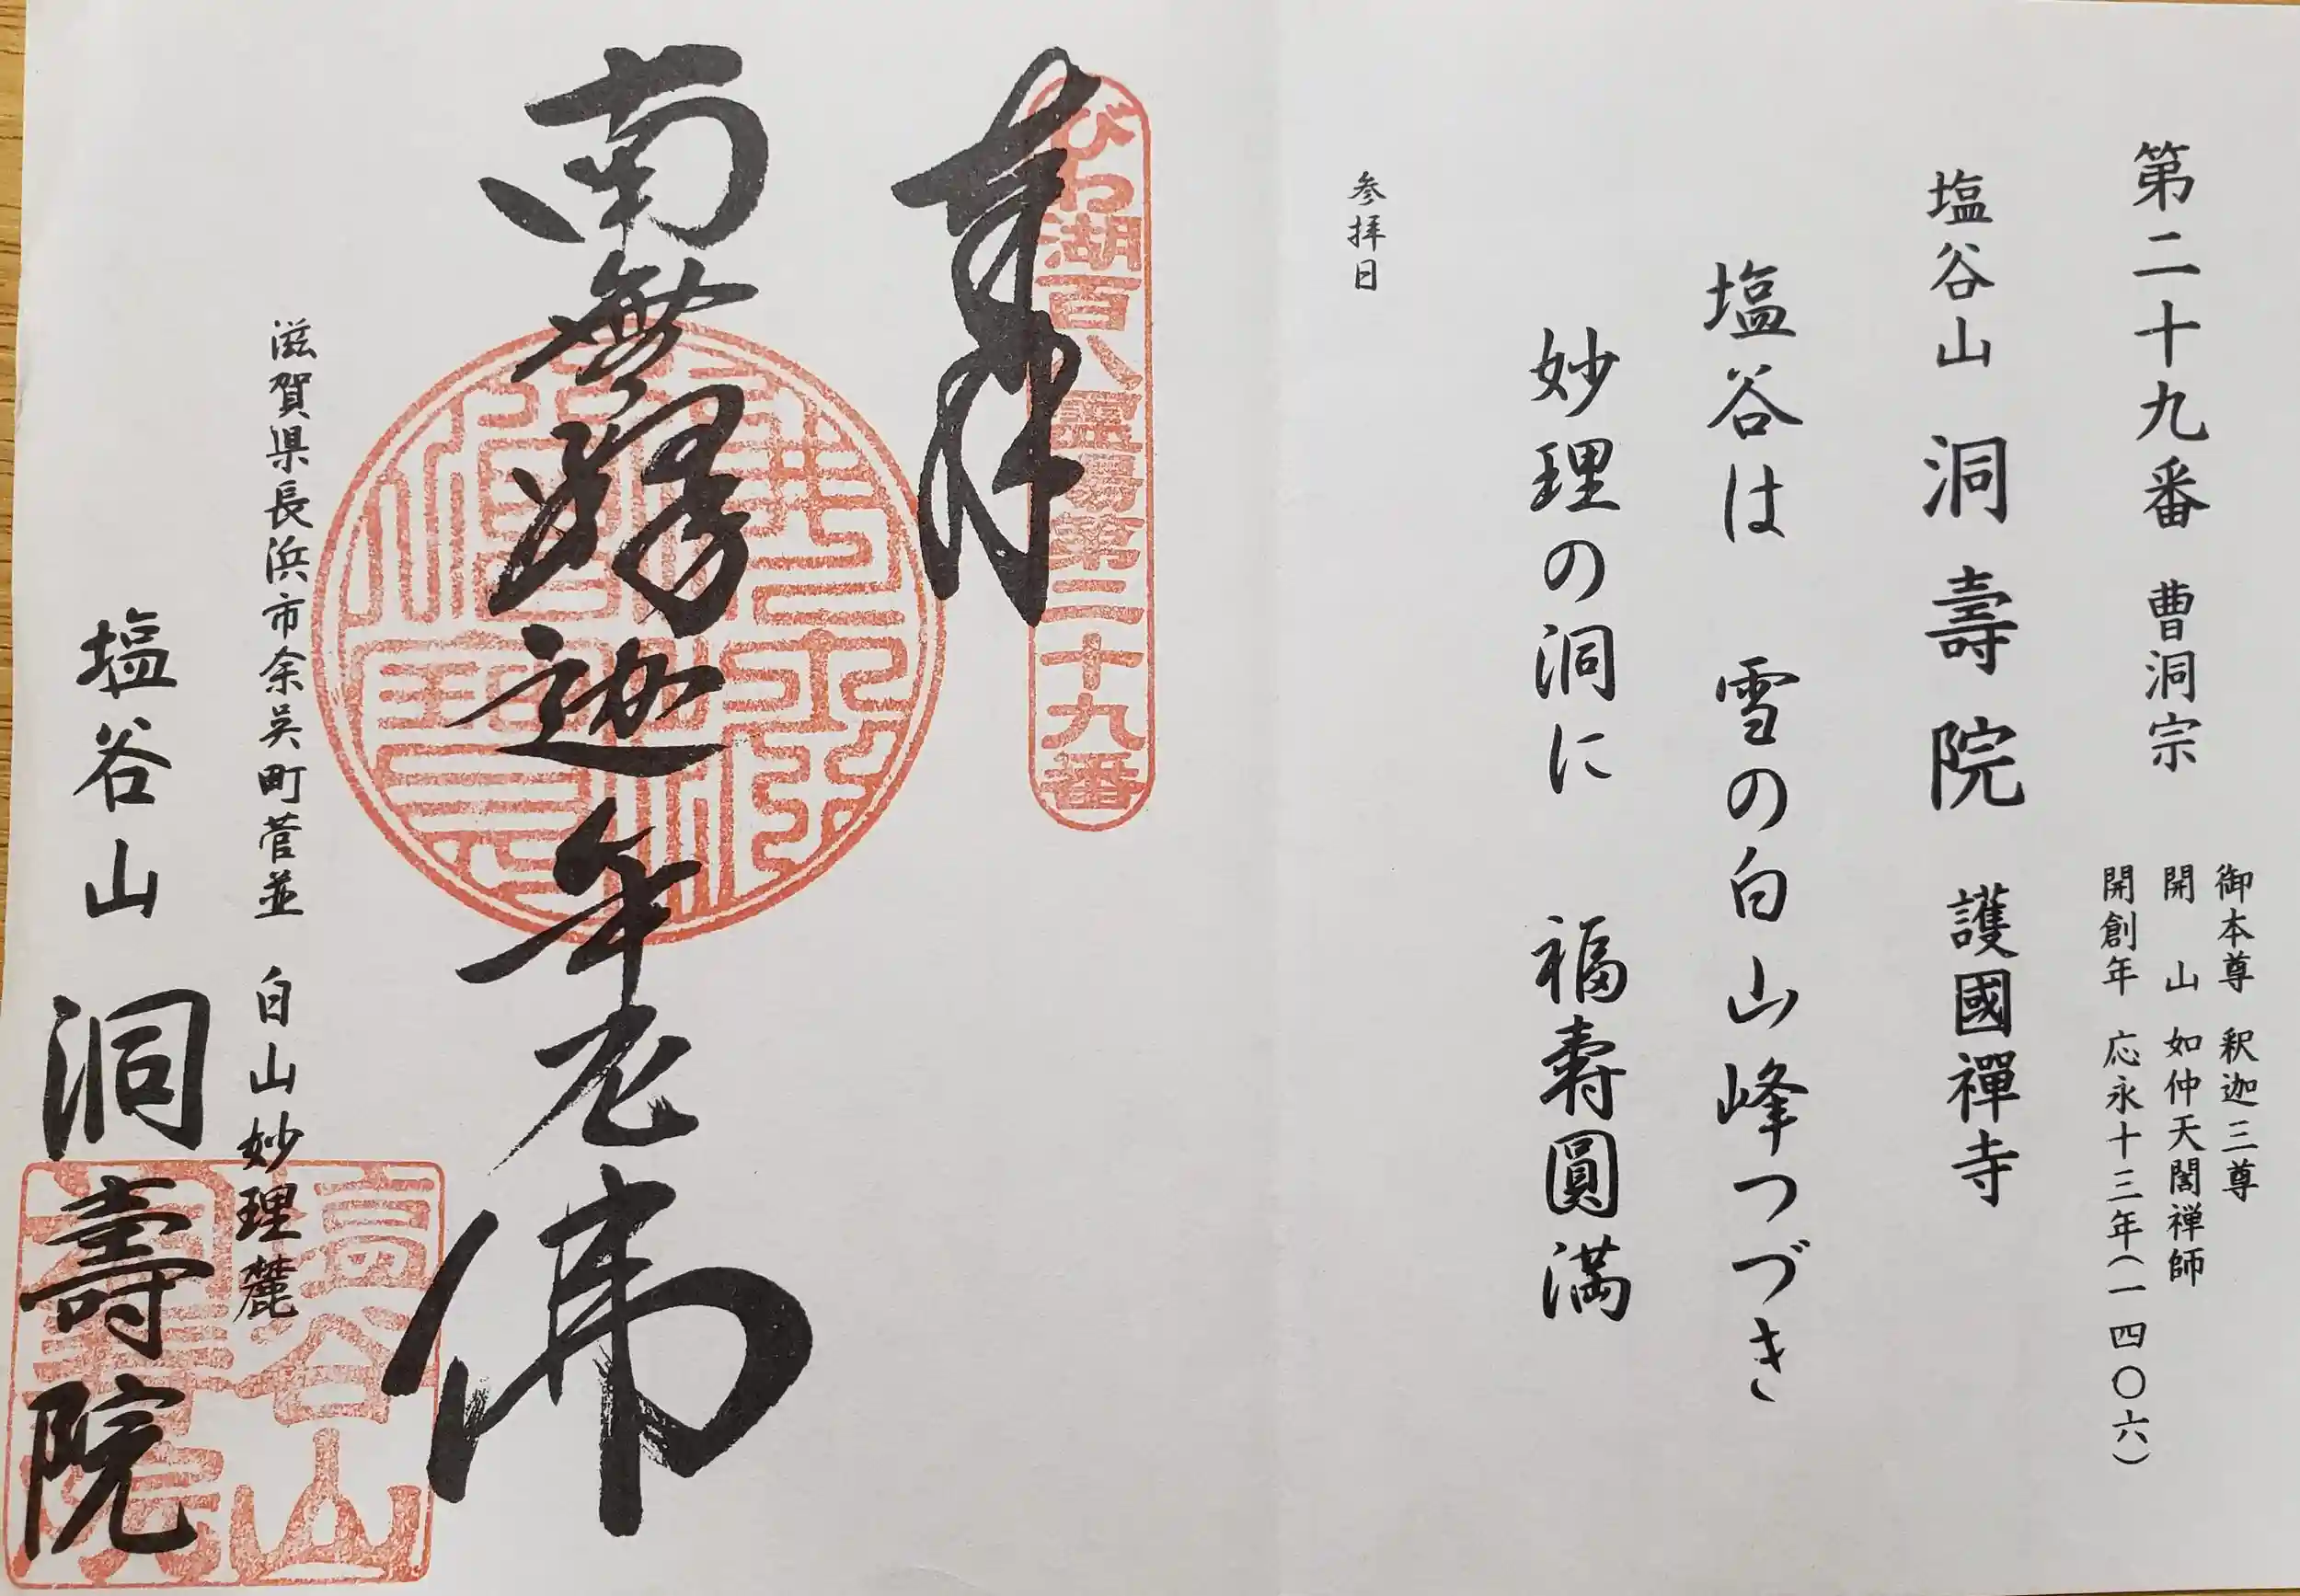 第二十九番 曹洞宗
御本尊 釈迦三尊
開山 如仲天誾禅師
開創年 応永十三年(一四〇六)
塩谷山 洞壽院 護國禪寺
塩谷は 雪の白山峰つづき
妙理の洞に 福壽圓満
参拝日
びわ湖百八霊場第二十九番
奉拝
南無釋迦牟尼佛
滋賀県長浜市余呉町菅並 白山妙理麓
塩谷山 洞壽院
塩谷山
洞壽院